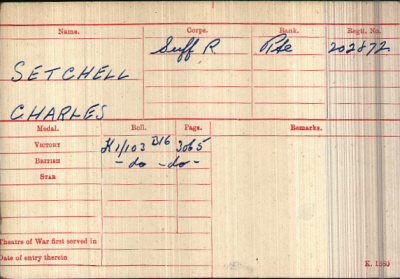 Name. Corps. Rank. Regtl. No.
Suff R. Pte 202872
SETCHELL
CHARLES
Medal. Roll. Page. Remarks.
VICTORY H1/103 B16 3065
BRITISH -do- -do-
STAR
Theatre of War first served in
Date of entry therein
K. 1380